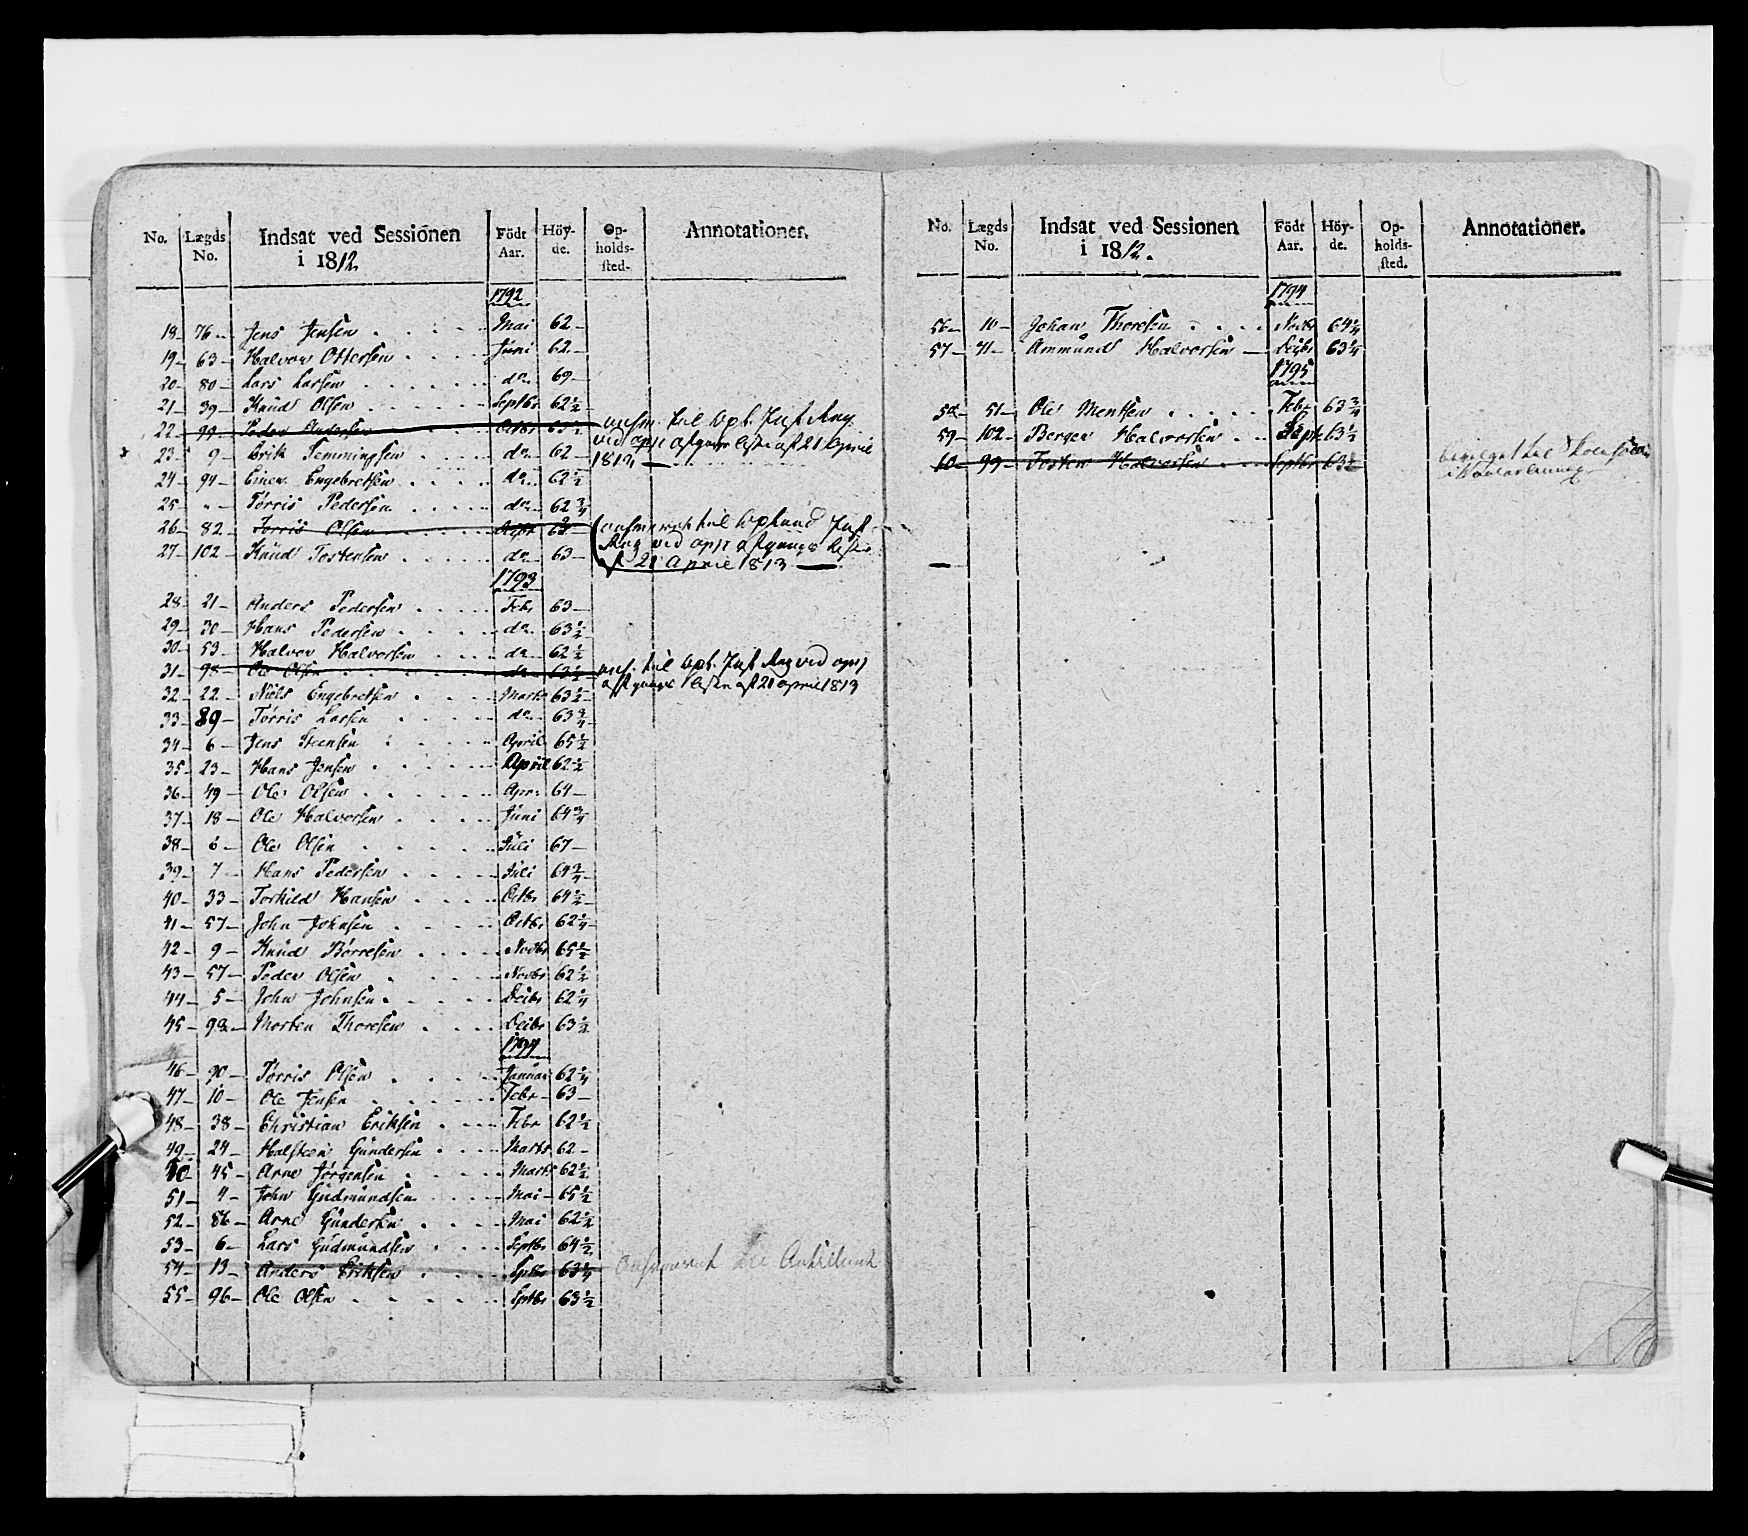 No. Lægds No. Indsat ved Sessionen i 1812. Födt Aar. Höyde. Opholdssted. Annotationer.
1792
18 – 76 – Jens Jensen . . . . Mai 62 –
19 – 63 – Halvor Ottersen . . . . Juni 62 –
20 – 80 – Lars Larsen . . . . do 69 –
21 – 39 – Knud Olsen . . . . Septbr 62½ –
22 – 99 – Peder Andersen Octbr 63½ – til Opl. Inft Reg.
ved afgangs liste af 21 April
23 – 9 – Erik Femmingsen . . do 62 – 1813. –
24 – 94 – Einer Engebretsen . . . . do 62½
25 – " – Torris Pedersen . . . . do 62¾
26 – 82 – Torris Olsen . . . . 63 – til Opland Inft
27 – 102 – Knud Tostensen . . . do 63 – Reg ved afgangs Liste
af 21 April 1813 –
1793
28 – 21 – Anders Pedersen . . . . Febr 63 –
29 – 30 – Hans Pedersen . . . . do 63½
30 – 53 – Halvor Halvorsen . . . do 62½
31 – 98 – Ole Olsen . . . . do 63½ til Opl. Inft Reg ved
afgangs Listen af 21 April 1813
32 – 22 – Niels Engebretsen . . . Marts 63½ –
33 – 89 – Torris Larsen . . . . do 63¾
34 – 6 – Jens Steensen . . . . April 65½
35 – 23 – Hans Jensen . . . . April 62½
36 – 49 – Ole Olsen . . . . Apr: 64 –
37 – 18 – Ole Halvorsen . . . . Juni 64¾
38 – 6 – Ole Olsen . . . . Juli 67 –
39 – 7 – Hans Pedersen . . . . Juli 64¾ –
40 – 33 – Torkild Hansen . . . . Octbr 64½ –
41 – 57 – John Johnsen . . . . Octbr 62¼ –
42 – 9 – Knud Börresen . . . . Novbr 65½
43 – 57 – Peder Olsen . . . . Novbr 62½
44 – 5 – John Johnsen . . . . Decbr 62¼
45 – 98 – Morten Thoresen . . . . Decbr 63½
1794
46 – 90 – Torris Olsen . . . . Januar 62¼
47 – 10 – Ole Jensen . . . . Febr – 63 –
48 – 38 – Christian Eriksen . . . Febr 62½
49 – 24 – Halsteen Gundersen . . . . Marts 62 –
50 – 45 – Arne Jörgensen . . . . Marts 62½
51 – 4 – John Gudmundsen . . . Mai – 65½
52 – 86 – Arne Gundersen . . . . Mai 62½
53 – 6 – Lars Gudmundsen . . . Septbr 64½
54 – 13 – Anders Eriksen . . . . Sptbr 63¼
55 – 96 – Ole Olsen . . . . Sptbr 63½
No. Lægds No. Indsat ved Sessionen i 1812. Födt Aar. Höyde. Opholdssted. Annotationer.
1794
56 – 10 – Johan Thoresen . . . . Novbr 64¼
57 – 71 – Ammund Halvorsen – Decbr 63¼
1795
58 – 51 – Ole Mentsen . . . . Febr 63¾
59 – 102 – Berger Halvorsen . . Sept 63½
60 – 99 – Tosten Halvorsen . . . Septbr 63½